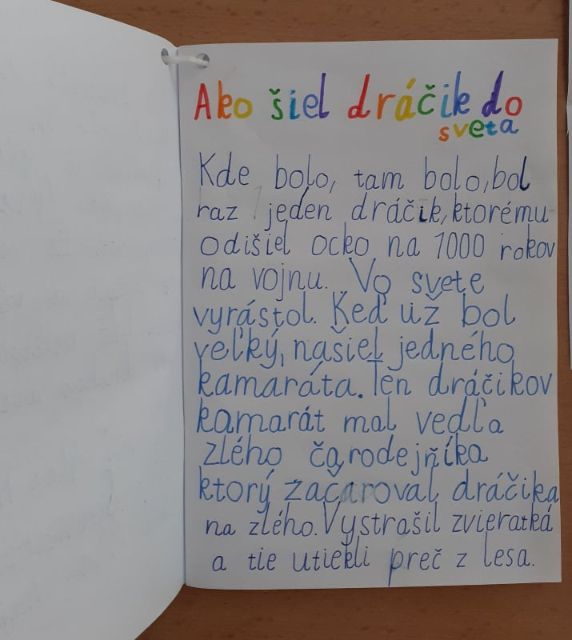 Ako šiel dráčik do
sveta
Kde bolo, tam bolo, bol
raz jeden dráčik, ktorému
odišiel ocko na 1000 rokov
na vojnu. Vo svete
vyrástol. Keď už bol
veľký, našiel jedného
kamaráta. Ten dráčikov
kamarát mal vedľa
zlého čarodejníka
ktorý začaroval dráčika
na zlého. Vystrašil zvieratká
a tie utiekli preč z lesa.